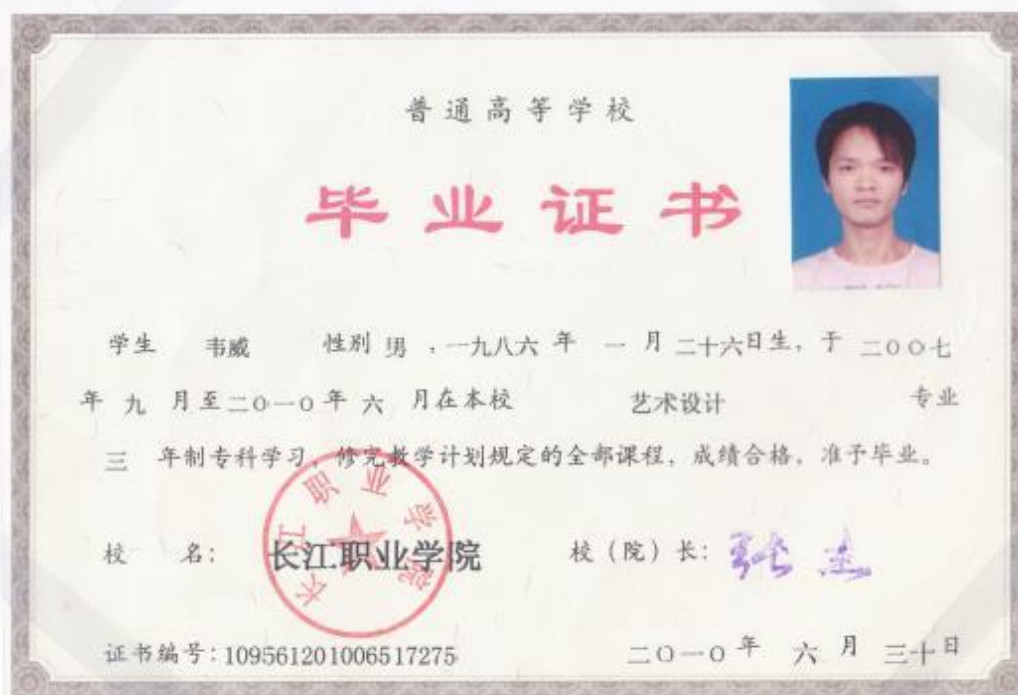 普通高等学校
毕业证书
学生 韦威 性别 男 ，一九八六 年 一 月 二十六日生，于 二〇〇七
年 九 月至二〇一〇年 六 月在本校 艺术设计 专业
三 年制专科学习，修完教学计划规定的全部课程，成绩合格，准予毕业。
长江职业学院
校 名： 长江职业学院 校（院）长： 张杰
证书编号：109561201006517275 二〇一〇年 六 月 三十日